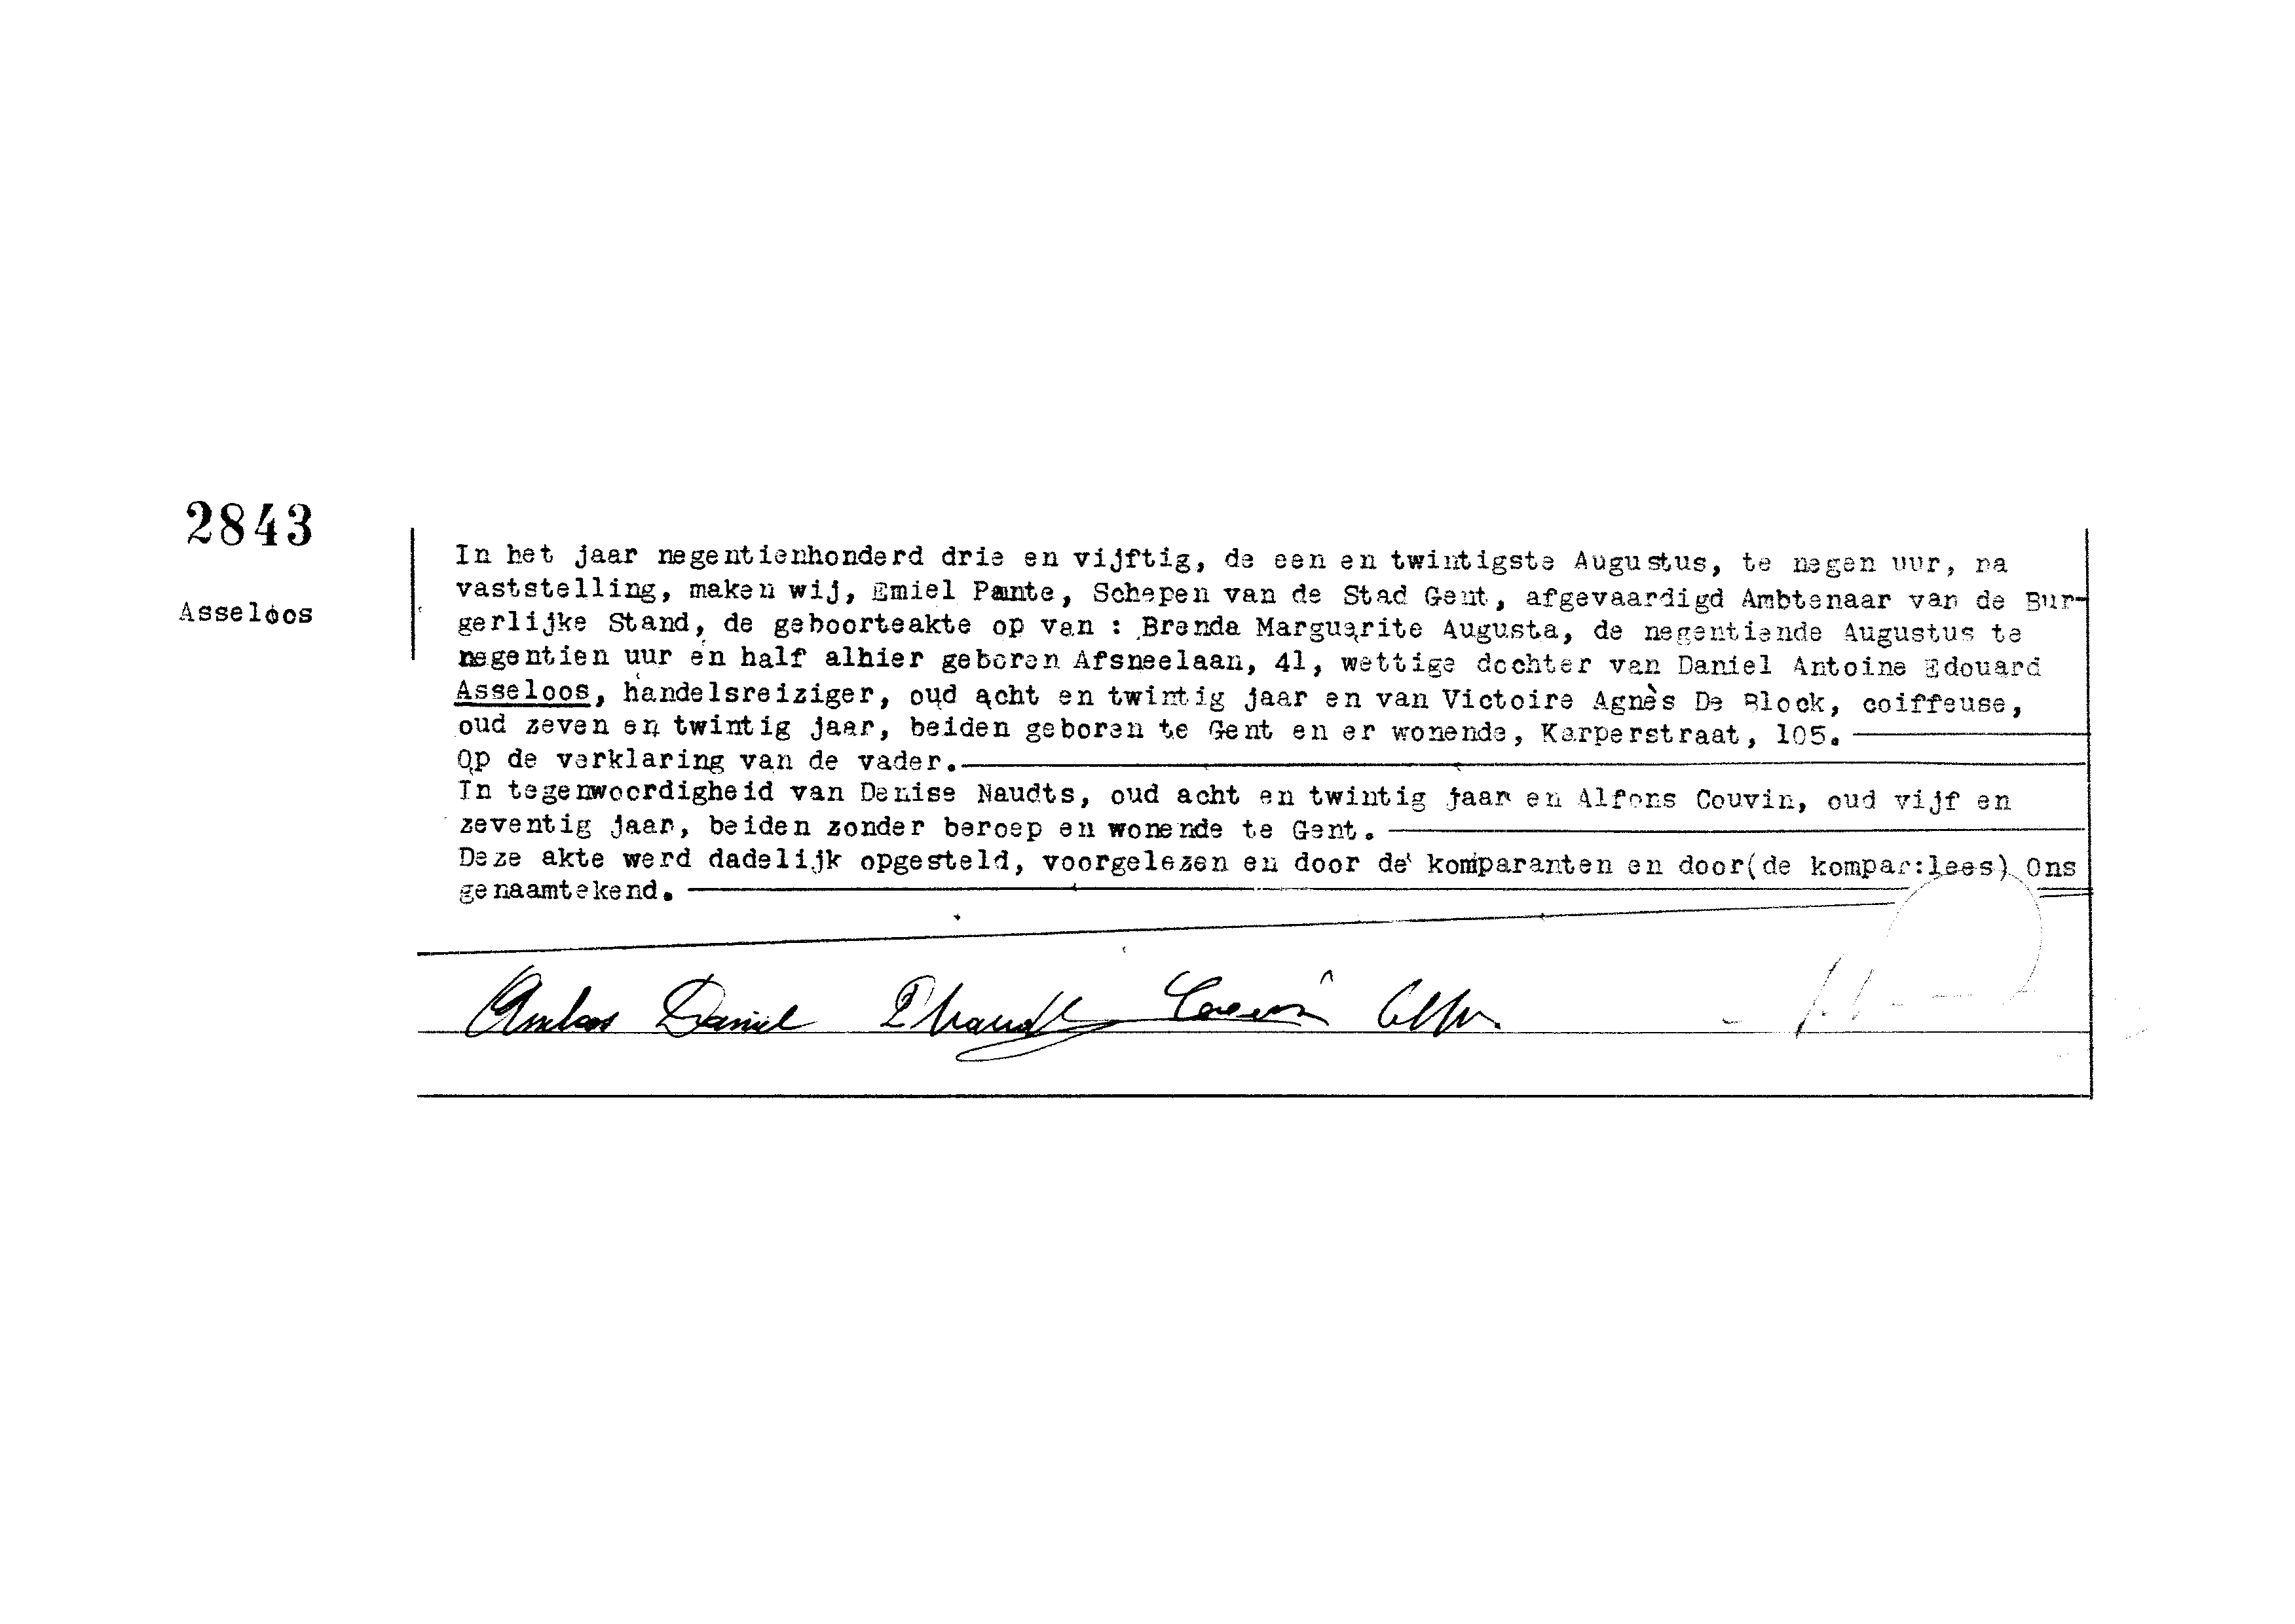 2843
Asseloos
In het jaar negentienhonderd drie en vijftig, de een en twintigste Augustus, te negen uur, na
vaststelling, maken wij, Emiel Pante, Schepen van de Stad Gent, afgevaardigd Ambtenaar van de Bur-
gerlijke Stand, de geboorteakte op van : Brenda Marguerite Augusta, de negentiende Augustus te
negentien uur en half alhier geboren Afsneelaan, 41, wettige dochter van Daniel Antoine Edouard
Asseloos, handelsreiziger, oud acht en twintig jaar en van Victoire Agnès De Block, coiffeuse,
oud zeven en twintig jaar, beiden geboren te Gent en er wonende, Karperstraat, 105.
Op de verklaring van de vader.
In tegenwoordigheid van Denise Naudts, oud acht en twintig jaar en Alfons Couvin, oud vijf en
zeventig jaar, beiden zonder beroep en wonende te Gent.
Deze akte werd dadelijk opgesteld, voorgelezen en door de komparanten en door(de kompar:lees) Ons
genaamtekend.
Asseloos Daniel